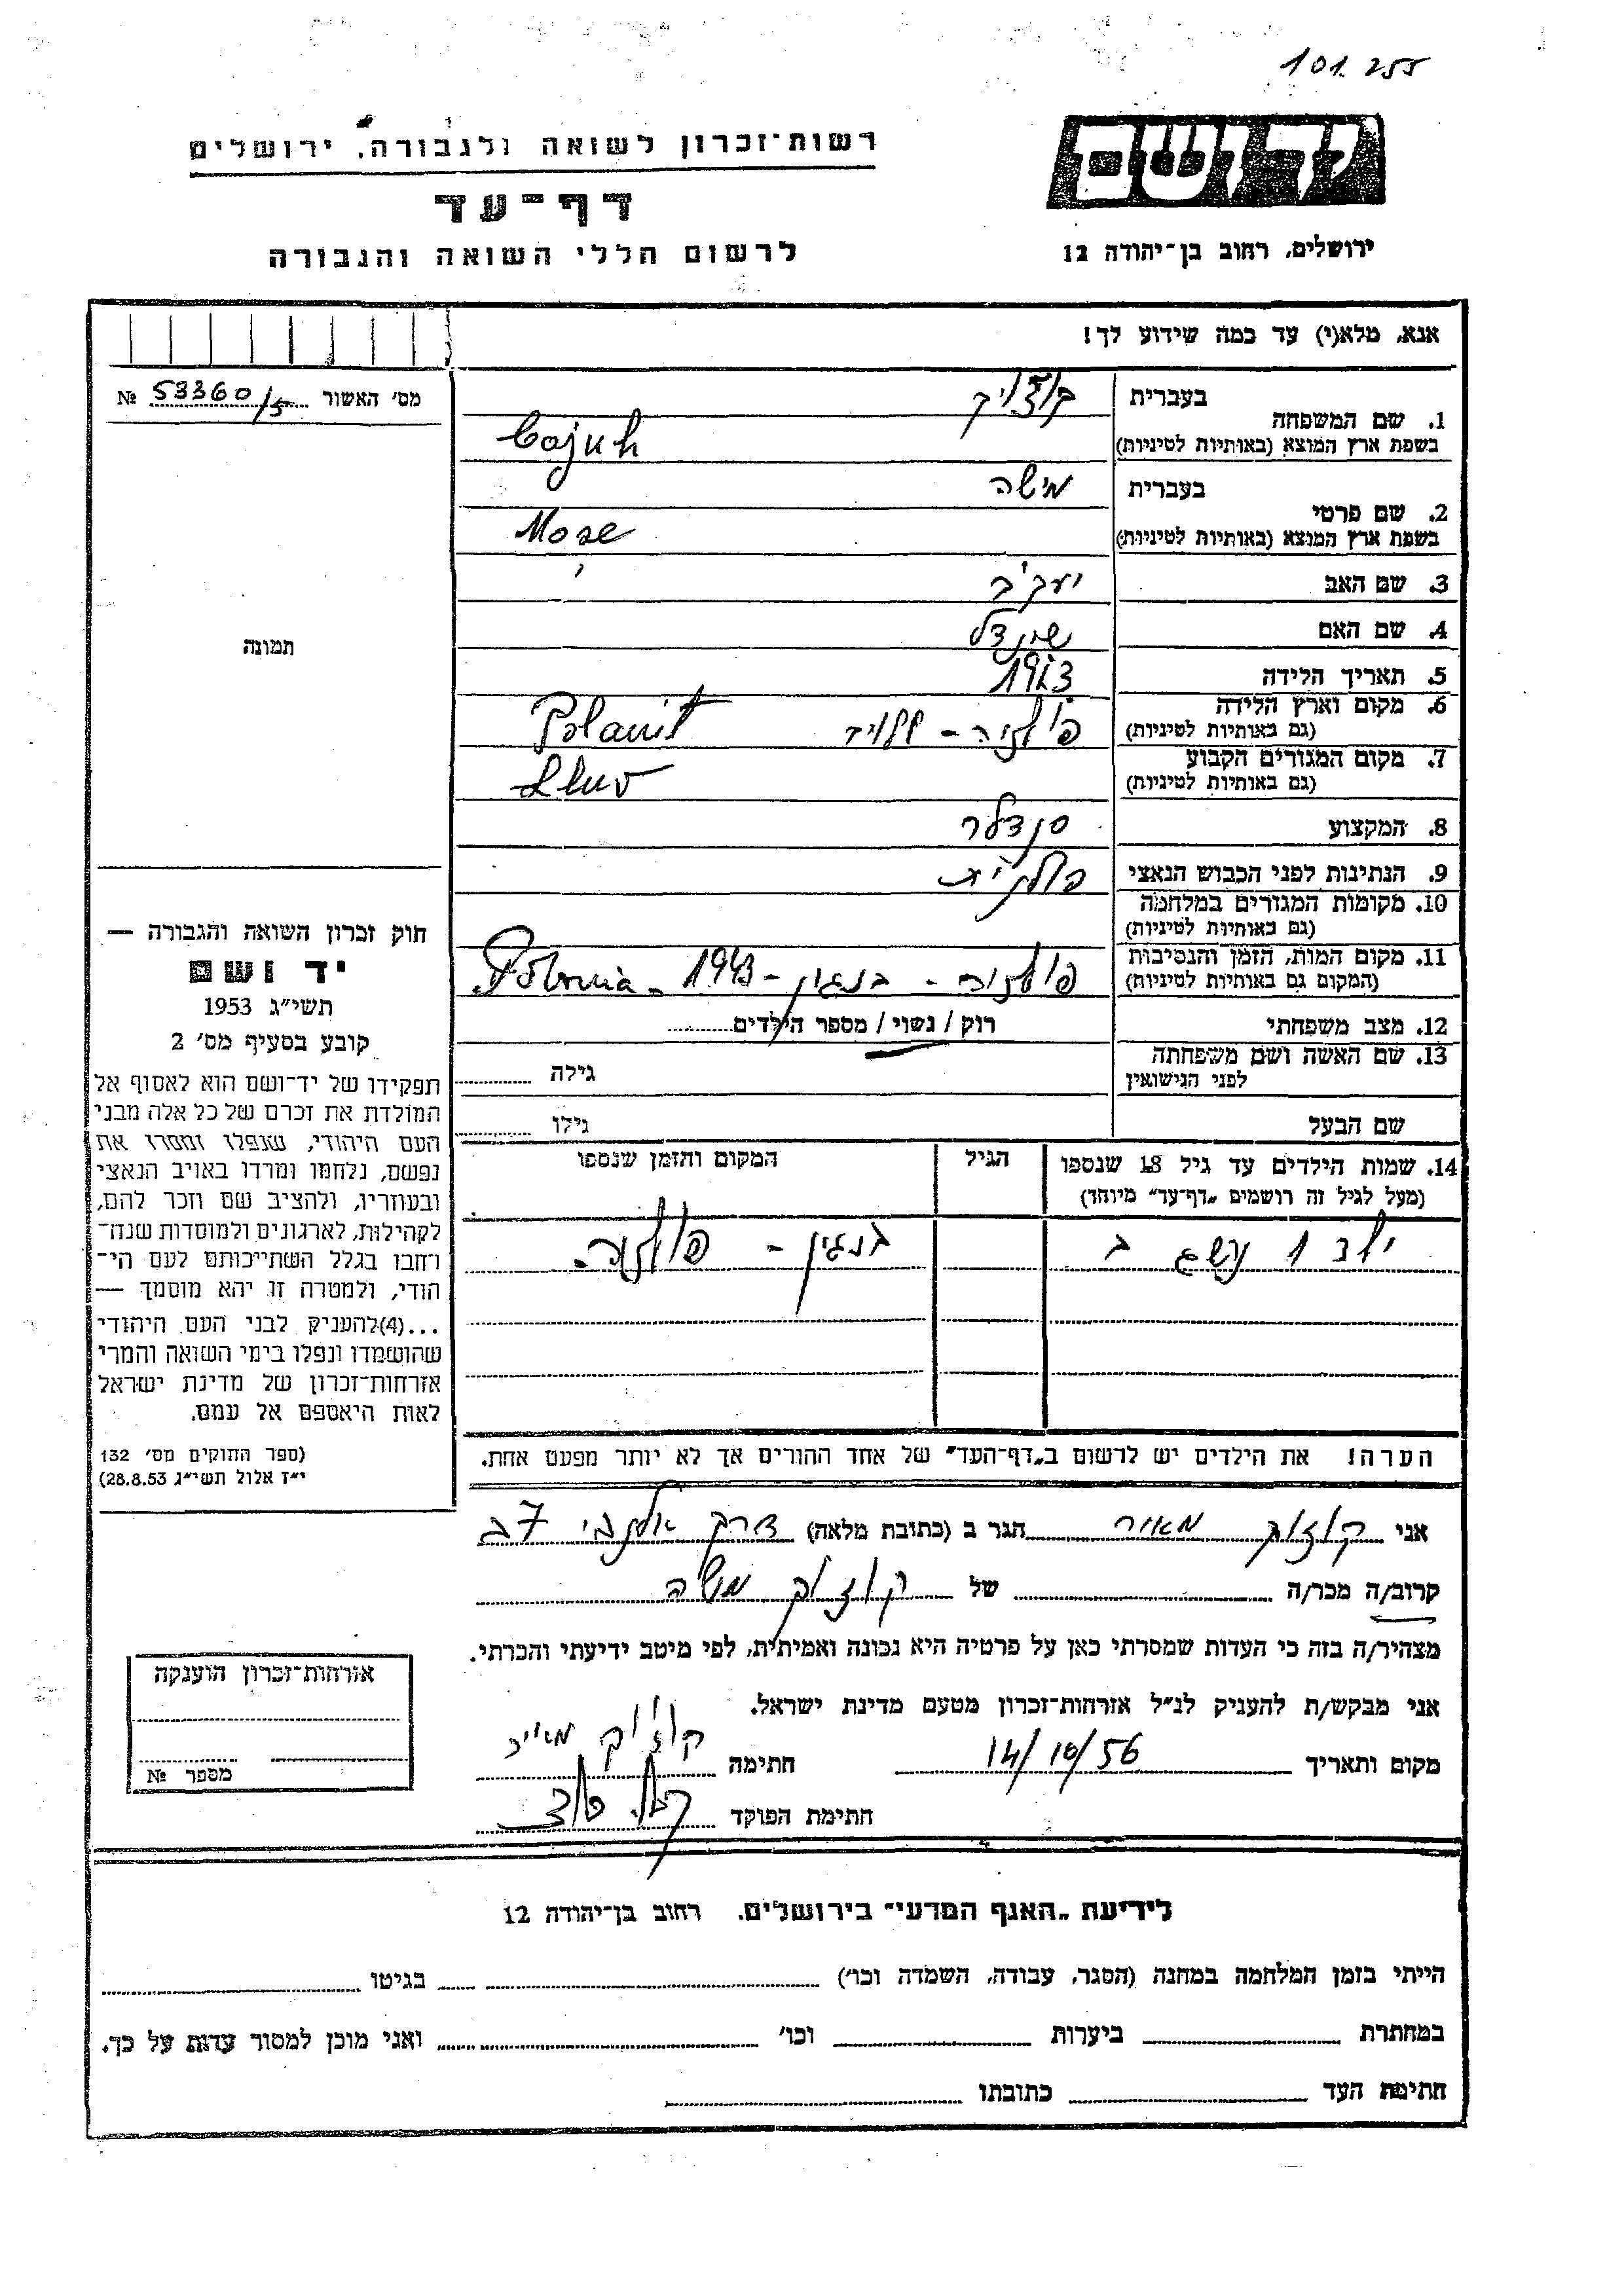 101.255
יד ושם
רשות־זכרון לשואה ולגבורה, ירושלים
דף־עד
לרשום חללי השואה והגבורה
ירושלים, רחוב בן־יהודה 12
אנא, מלא(י) עד כמה שידוע לך!
מס׳ האשור № 53360/5
תמונה
1. שם המשפחה
בעברית
בשפת ארץ המוצא (באותיות לטיניות)
2. שם פרטי
בעברית משה
בשפת ארץ המוצא (באותיות לטיניות) Mose
3. שם האב יעקב
4. שם האם
5. תאריך הלידה
6. מקום וארץ הלידה
(גם באותיות לטיניות)
7. מקום המגורים הקבוע
(גם באותיות לטיניות)
8. המקצוע סנדלר
9. הנתינות לפני הכבוש הנאצי פולנית
10. מקומות המגורים במלחמה
(גם באותיות לטיניות)
11. מקום המות, הזמן והנסיבות פולניה - 1943 -
(המקום גם באותיות לטיניות)
12. מצב משפחתי רוק / נשוי / מספר הילדים
13. שם האשה ושם משפחתה
לפני הנישואין גילה
שם הבעל גילו
14. שמות הילדים עד גיל 18 שנספו
(מעל לגיל זה רושמים „דף־עד״ מיוחד)
הגיל
המקום והזמן שנספו
ילד 1
פולניה
הערה! את הילדים יש לרשום ב„דף־העד״ של אחד ההורים אך לא יותר מפעם אחת.
חוק זכרון השואה והגבורה —
יד ושם
תשי״ג 1953
קובע בסעיף מס׳ 2
תפקידו של יד־ושם הוא לאסוף אל
המולדת את זכרם של כל אלה מבני
העם היהודי, שנפלו ומסרו את
נפשם, נלחמו ומרדו באויב הנאצי
ובעוזריו, ולהציב שם וזכר להם,
לקהילות, לארגונים ולמוסדות שנח־
רחבו בגלל השתייכותם לעם הי־
הודי, ולמטרה זו יהא מוסמך —
...(4)להעניק לבני העם היהודי
שהושמדו ונפלו בימי השואה והמרי
אזרחות־זכרון של מדינת ישראל
לאות היאספם אל עמם.
(ספר החוקים מס׳ 132
י״ז אלול תשי״ג 28.8.53)
אני מאיר הגר ב (כתובת מלאה) דרך אלנבי
קרוב/ה מכר/ה של משה
מצהיר/ה בזה כי העדות שמסרתי כאן על פרטיה היא נכונה ואמיתית, לפי מיטב ידיעתי והכרתי.
אני מבקש/ת להעניק לנ״ל אזרחות־זכרון מטעם מדינת ישראל.
מקום ותאריך 14/10/56 חתימה מאיר
חתימת הפוקד
אזרחות־זכרון הוענקה
מספר №
לידיעת „האגף המדעי״ בירושלים. רחוב בן־יהודה 12
הייתי בזמן המלחמה במחנה (הסגר, עבודה, השמדה וכו׳) בגיטו
במחתרת ביערות וכו׳ ואני מוכן למסור עדות על כך.
חתימת העד כתובתו